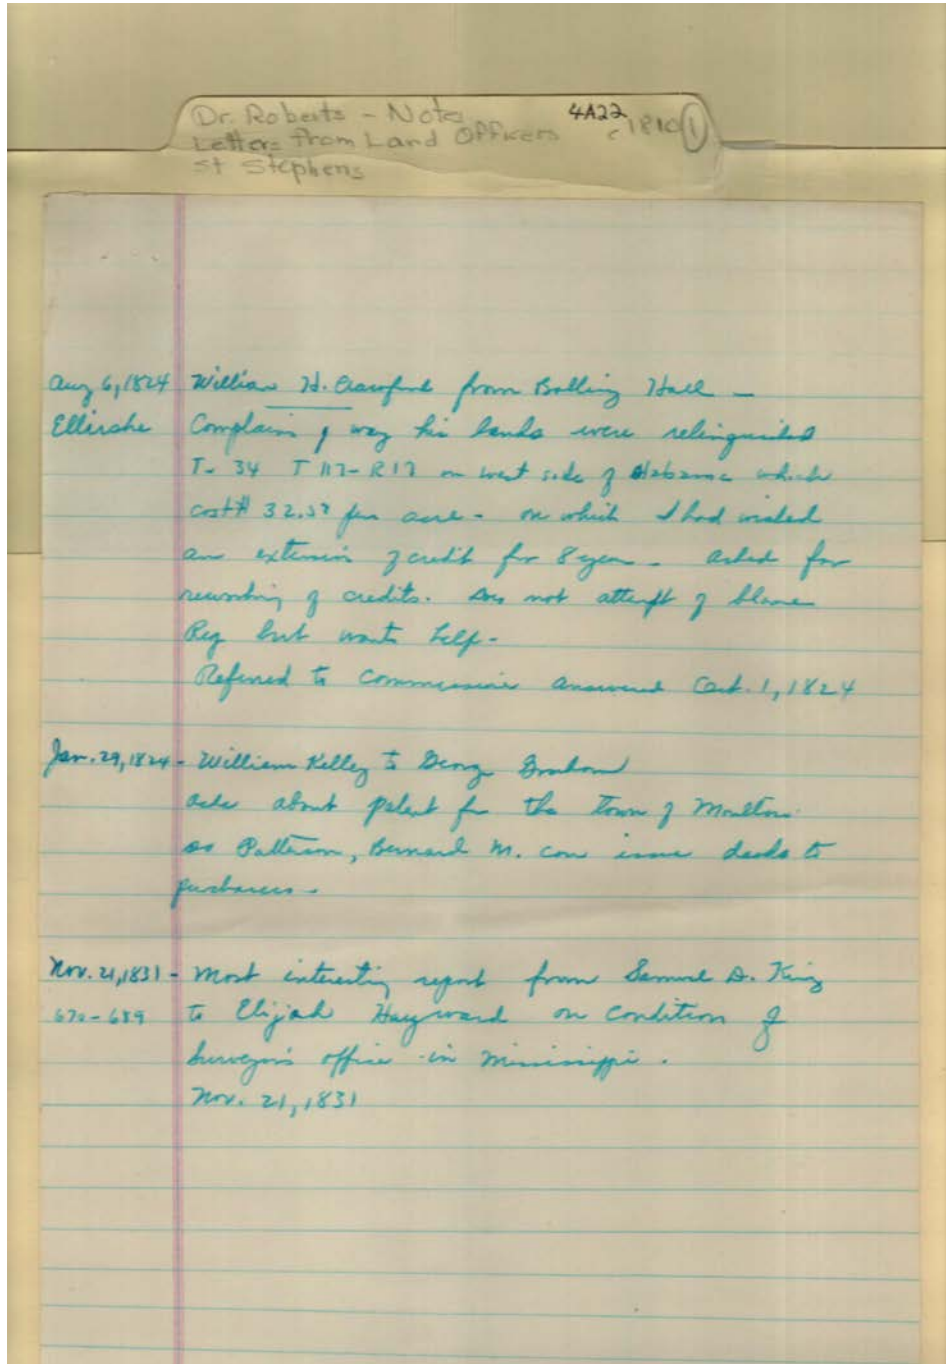 Dr. Roberts - Notes 4A22
Letters from Land Officers c 1810 1
St Stephens
Aug 6, 1824 William H. Crawford from Bolling Hall -
Complains of way his lands were relinquished
T- 34 T 117- R17 on west side of Alabama which
cost # 32.50 per acre - on which I had wished
an extension of credit for 8 years - asked for
of credits. Does not attempt of blame
Reg but wants help -
Referred to Commissioner answered Oct. 1, 1824
Jan. 29, 1824 - William Kelley to George Graham
asks about patent for the town of Moulton
so Patterson, Bernard M. can issue deeds to
purchasers -
Nov. 21, 1831 - Most interesting report from Samuel D. King
670-689 to Elijah Hayward on condition of
Surveyor's office in Mississippi.
Nov. 21, 1831